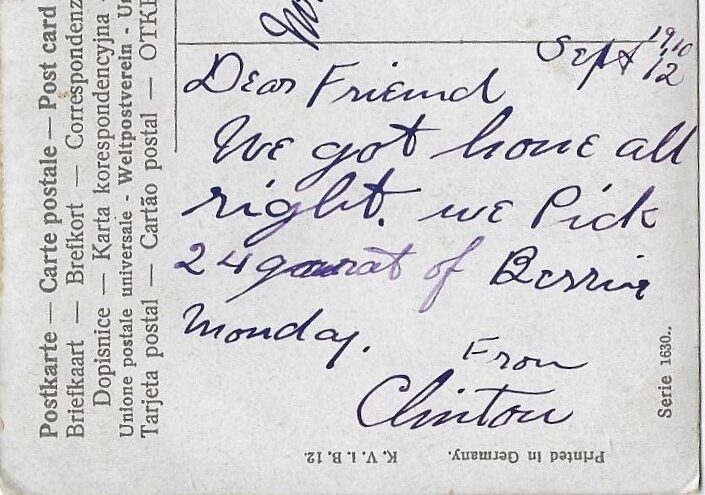 Sept 12
1910
Dear Friend
We got home all
right. we Pick
24 qurat of Berrie
Monday.
From
Clinton
Postkarte — Carte postale — Post card
Briefkaart — Brefkort — Correspondenz
Dopisnice — Karta korespondencyjna
Unione postale universale - Weltpostverein - Un
Tarjeta postal — Cartão postal — ОТКР
Serie 1630..
Printed in Germany.
K. V. i. B. 12.